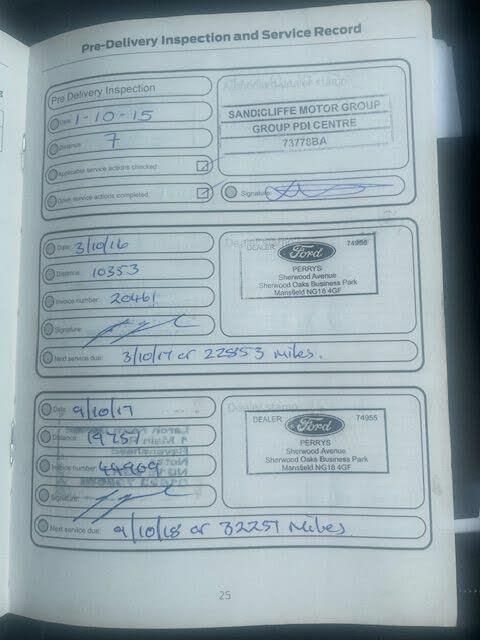 Pre-Delivery Inspection and Service Record
Pre Delivery Inspection
Date: 1-10-15
Distance: 7
Applicable service actions checked:
Open service actions completed:
SANDICLIFFE MOTOR GROUP
GROUP PDI CENTRE
73778BA
Signature:
Date: 3/10/16
Distance: 10353
Invoice number: 20461
Signature:
Next service due: 3/10/17 or 22853 miles.
DEALER 74955
Ford
PERRYS
Sherwood Avenue
Sherwood Oaks Business Park
Mansfield NG18 4GF
Date: 9/10/17
Distance: 19757
Invoice number: 44969
Signature:
Next service due: 9/10/18 or 32257 miles
Dealer stamp
DEALER 74955
Ford
PERRYS
Sherwood Avenue
Sherwood Oaks Business Park
Mansfield NG18 4GF
25